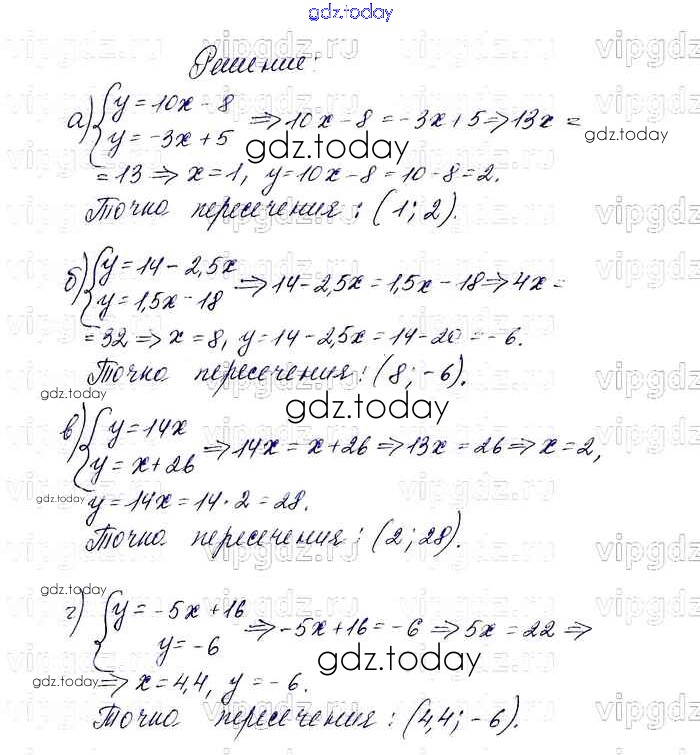 gdz.today
Решение:
а) { y = 10x - 8 ⇒ 10x - 8 = -3x + 5 ⇒ 13x =
y = -3x + 5
gdz.today
gdz.today
= 13 ⇒ x = 1, y = 10x - 8 = 10 - 8 = 2.
Точка пересечения: (1; 2).
б) { y = 14 - 2,5x ⇒ 14 - 2,5x = 1,5x - 18 ⇒ 4x =
y = 1,5x - 18
= 32 ⇒ x = 8, y = 14 - 2,5x = 14 - 20 = -6.
Точка пересечения: (8; -6).
gdz.today
gdz.today
в) { y = 14x ⇒ 14x = x + 26 ⇒ 13x = 26 ⇒ x = 2,
y = x + 26
gdz.today
y = 14x = 14 · 2 = 28.
Точка пересечения: (2; 28).
gdz.today
г) { y = -5x + 16 ⇒ -5x + 16 = -6 ⇒ 5x = 22 ⇒
y = -6
gdz.today
gdz.today
⇒ x = 4,4, y = -6.
Точка пересечения: (4,4; -6).